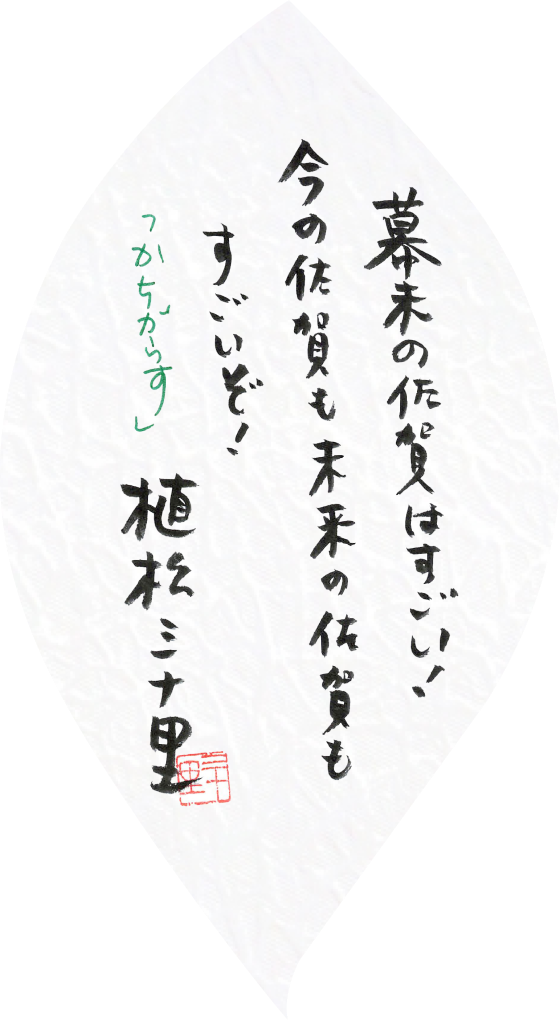 幕末の佐賀はすごい!
今の佐賀も未来の佐賀も
すごいぞ!
「かちがらす」
植松三十里
三十里